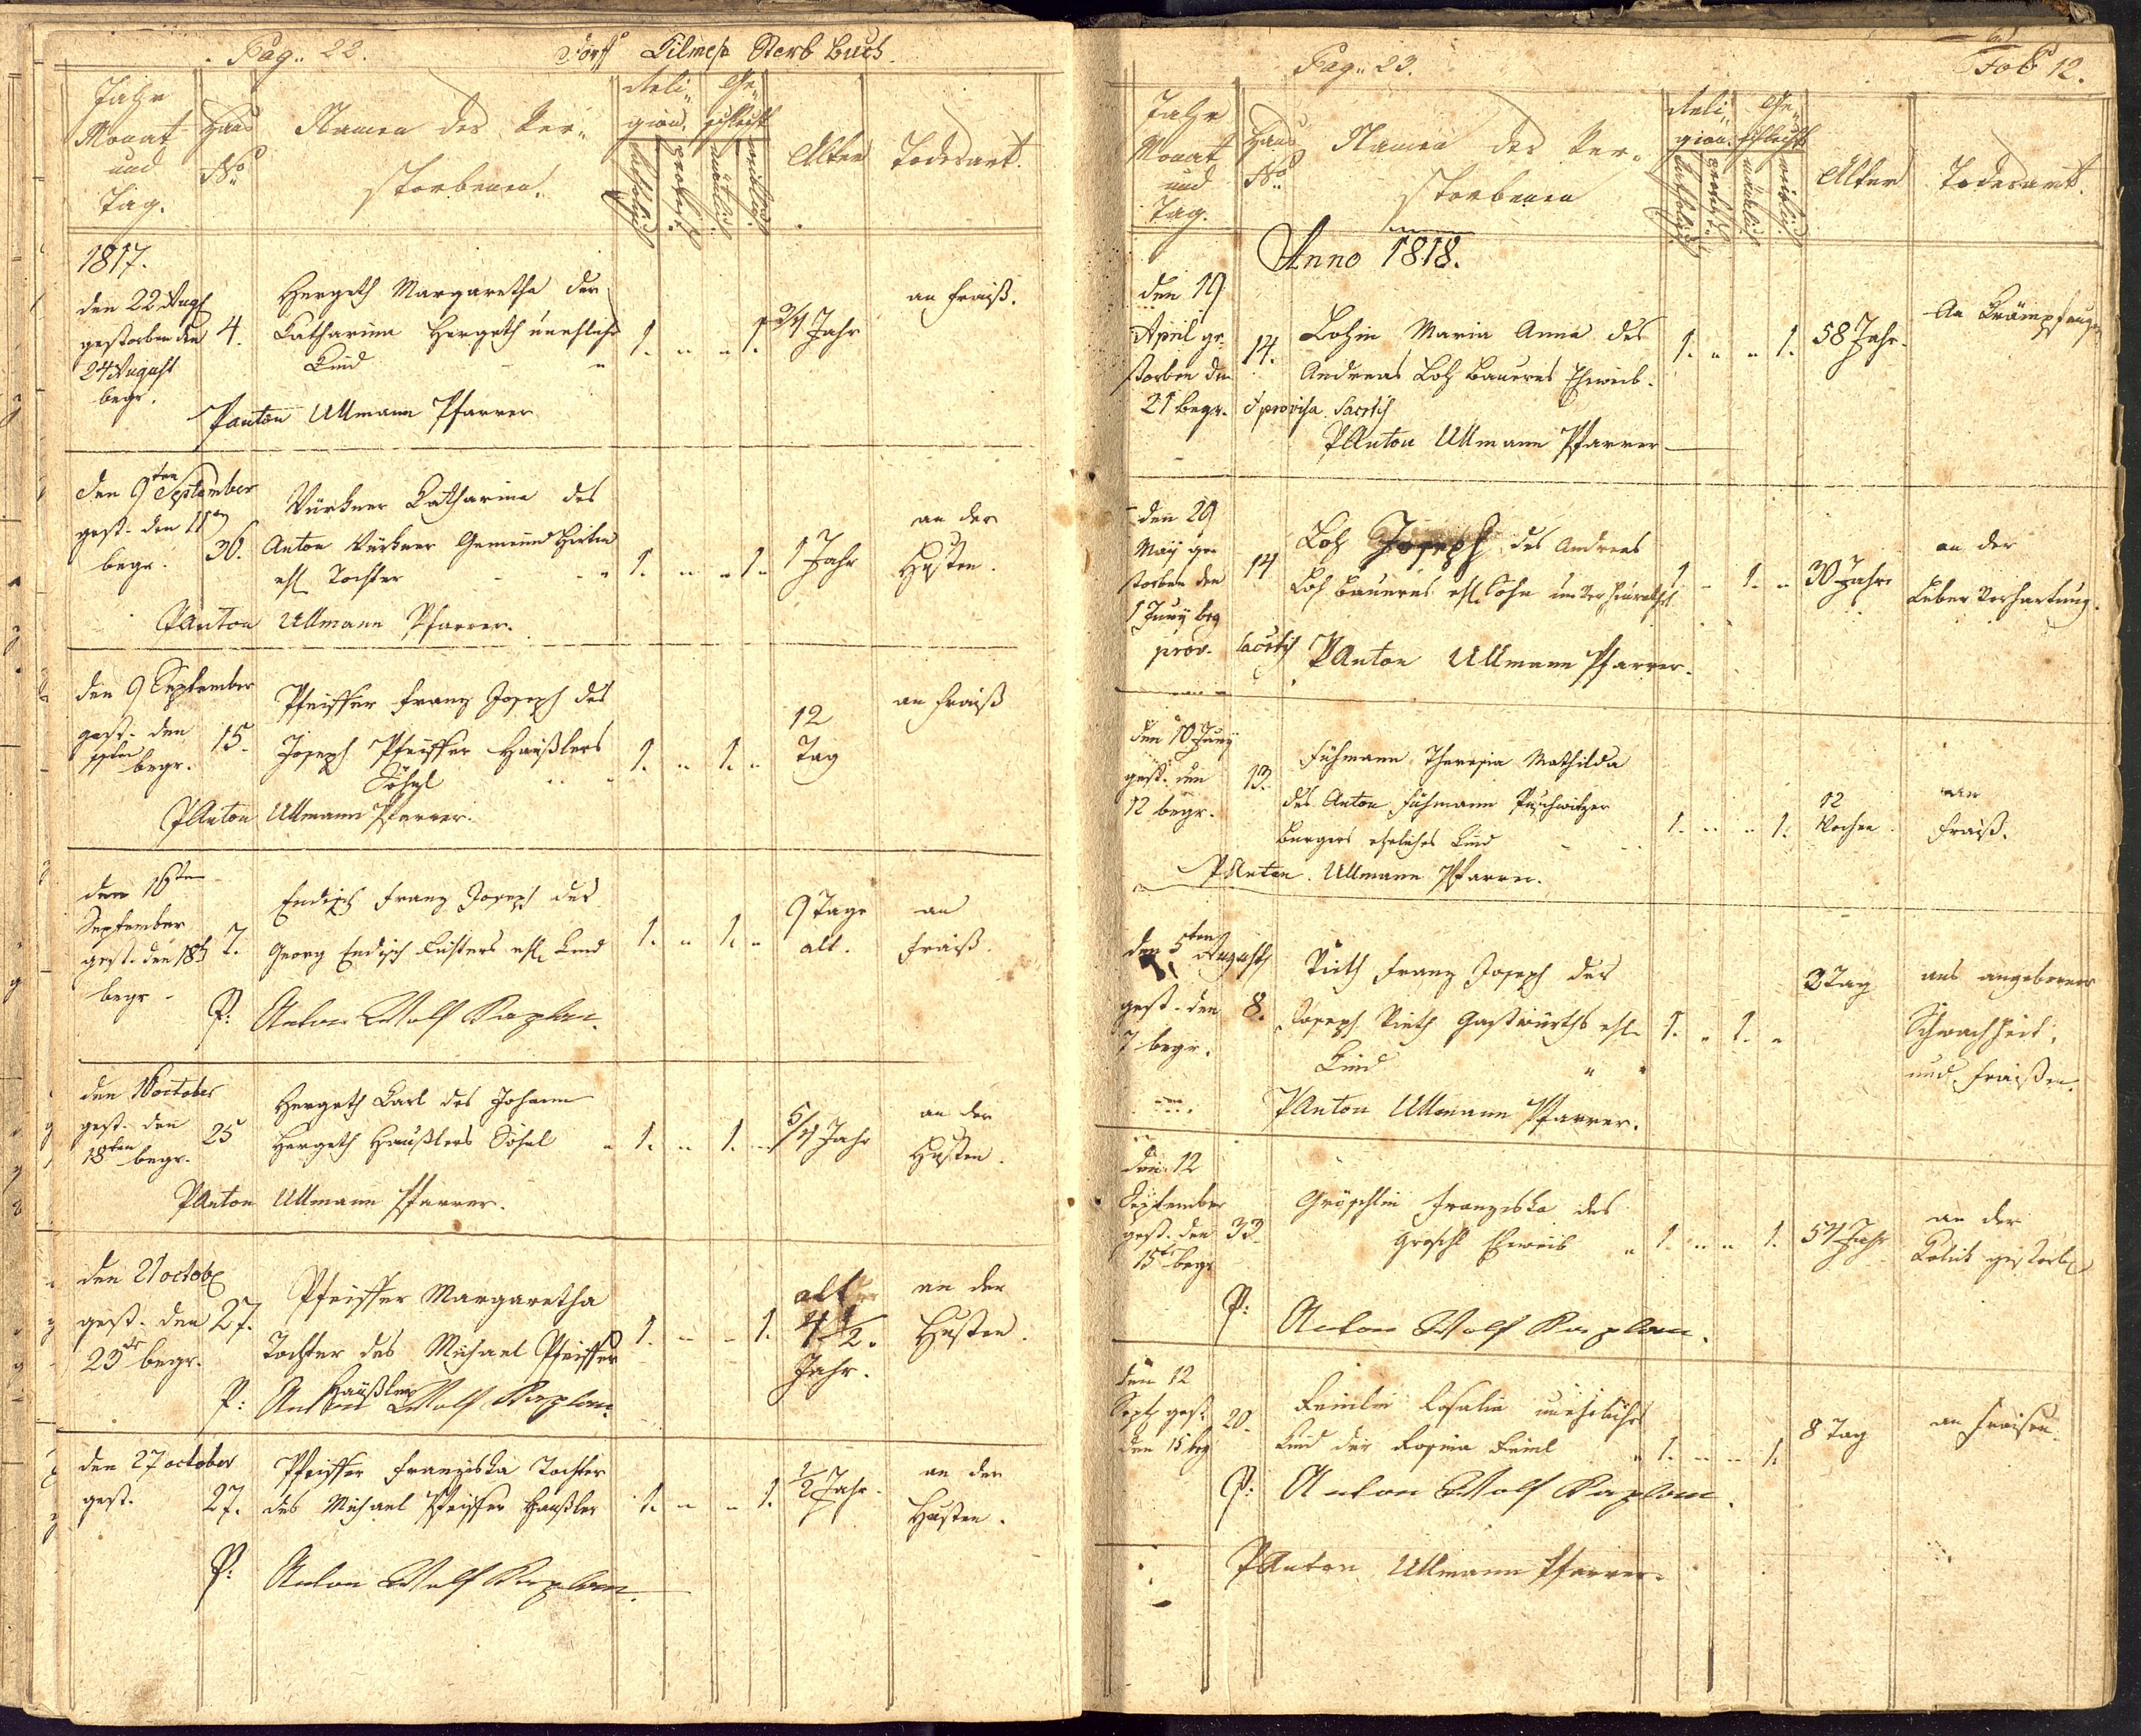 Pag. 22. Dorf Tilmesz Sterb Buch.
Jahr Monat und Tag.
Haus No
Namen der Verstorbenen.
Religion.
katholisch
protest.
Geschlecht
männlich.
weiblich.
Alter
Todesart.
1817.
den 22 Augst
gestorben den
24 August
begr.
4.
Hergeth Margaretha der
Catharina Hergeth unehliche
Kind
1. " " 1.
3/4 Jahr
an Fraiß.
P Anton Ullmann Pfarrer
den 9ten September
gest. den 11ten
begr.
36.
Catharina des
Anton Gemeind Hirten
ehl. Tochter
1. " " 1.
1 Jahr
an der
Husten.
P Anton Ullmann Pfarrer.
den 9 September
gest. den
begr.
15.
Pfeiffer Franz Joseph des
Joseph Pfeiffer Häußlers
Söhnl
1. " 1. "
12
Tag
an Fraiß
P Anton Ullmann Pfarrer.
den 16ten
September
gest. den 18t
begr.
7.
Endisch Franz Joseph des
Georg Endisch ehl. Kind
1. " 1. "
9 Tage
alt.
an
Fraiß.
P: Anton Wolf Kaplan.
den 16 october
gest. den
18ten begr.
25
Hergeth Carl des Johann
Hergeth Häußlers Söhnl
1. " 1. "
5/4 Jahr
an der
Husten.
P Anton Ullmann Pfarrer.
den 21 octob
gest. den
23t begr.
27.
Pfeiffer Margaretha
Tochter des Michael Pfeiffer
Häußler
1. " " 1.
alt
4 1/2.
Jahr.
an der
Husten.
P: Anton Wolf Kaplan.
den 27 october
gest.
27.
Pfeiffer Franziska Tochter
des Michael Pfeiffer Häußler
1. " " 1.
1/2 Jahr.
an der
Husten.
P: Anton Wolf Kaplan.
Pag. 23. Fol 12.
Jahr Monat und Tag.
Haus No
Namen der Verstorbenen
Religion.
katholisch
protest.
Geschlecht
männlich
weiblich.
Alter
Todesart.
Anno 1818.
den 19
April ge-
storben den
21 begr.
14.
Lohin Maria Anna des
Andreas Loh Bauers Eheweib.
provisa Sacris
1. " " 1.
58 Jahr.
P Anton Ullmann Pfarrer
den 29
May ge-
storben den
1 Juny beg
prov. Sacris
14
Loh Joseph des Andreas
Loh Bauers ehl. Sohn unverheurathet
1 " 1. "
30 Jahre
an der
Leber Verhartung.
P Anton Ullmann Pfarrer.
den 10 Juny
gest. den
12 begr.
13.
Fuhmann Theresia Mathilda
des Anton Fuhmann Puschwitzer
Burgers eheliches Kind
1. " " 1.
12
Wochen.
an
Fraiß.
P Anton Ullmann Pfarrer.
den 5ten August
gest. den
7 begr.
8.
Rieth Franz Joseph des
Joseph Rieth Gastwürths ehl.
Kind
1. " 1. "
3 Tag
aus angeborner
Schwachheit,
und Fraißen.
P Anton Ullmann Pfarrer.
den 12
September
gest. den
15t begr
33.
Gröschlin Franziska des
Groschl Eheweib
1. " " 1.
54 Jahr
an der
Kolick gestorb
P: Anton Wolf Kaplan.
den 12
Sept gest.
den 15 beg
20.
Feinlin Rosalia unehliches
Kind der Rosina Feinl
1. " " 1.
8 Tag
an Fraisen.
P: Anton Wolf Kaplan.
P Anton Ullmann Pfarrer.